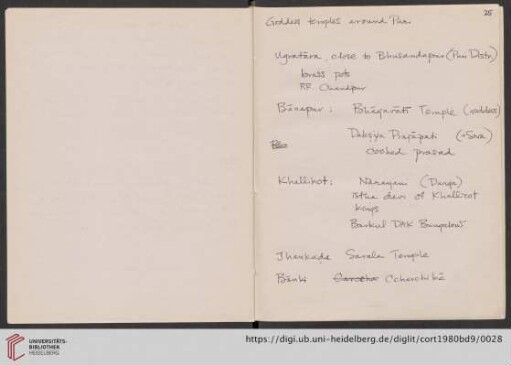 25
Goddess temples around Puri
Ugratāra, close to Bhusandapur (Puri Distr.)
brass pots
RR Chandpur
Bānapur: Bhāgavati Temple (goddess)
Daksya Prajāpati (Sava)
cooked prasad
Khallikot: Nārayani (Durga)
istha devi of Khallikot
kings
Barkul DAK Bungalow
Jhenkada Sarala Temple
Bānki Carcha Ccharchikā
UNIVERSITÄTS-
BIBLIOTHEK
HEIDELBERG
https://digi.ub.uni-heidelberg.de/diglit/cort1980bd9/0028